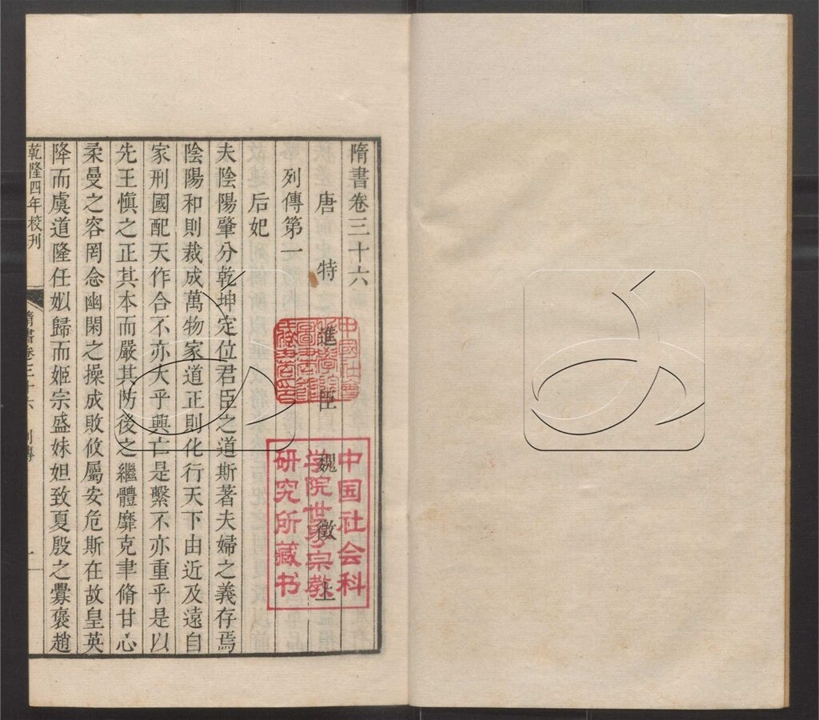 隋書卷三十六
唐特進臣魏徵上
列傳第一
后妃
夫陰陽肇分乾坤定位君臣之道斯著夫婦之義存焉
陰陽和則裁成萬物家道正則化行天下由近及遠自
家刑國配天作合不亦大乎興亡是繫不亦重乎是以
先王慎之正其本而嚴其防後之繼體靡克聿脩甘心
柔曼之容罔念幽閑之操成敗攸屬安危斯在故皇英
降而虞道隆任姒歸而姬宗盛妹妲致夏殷之釁褒趙
乾隆四年校刊
隋書卷三十六 列傳 一
中国社会科
学院世界宗教
研究所藏书